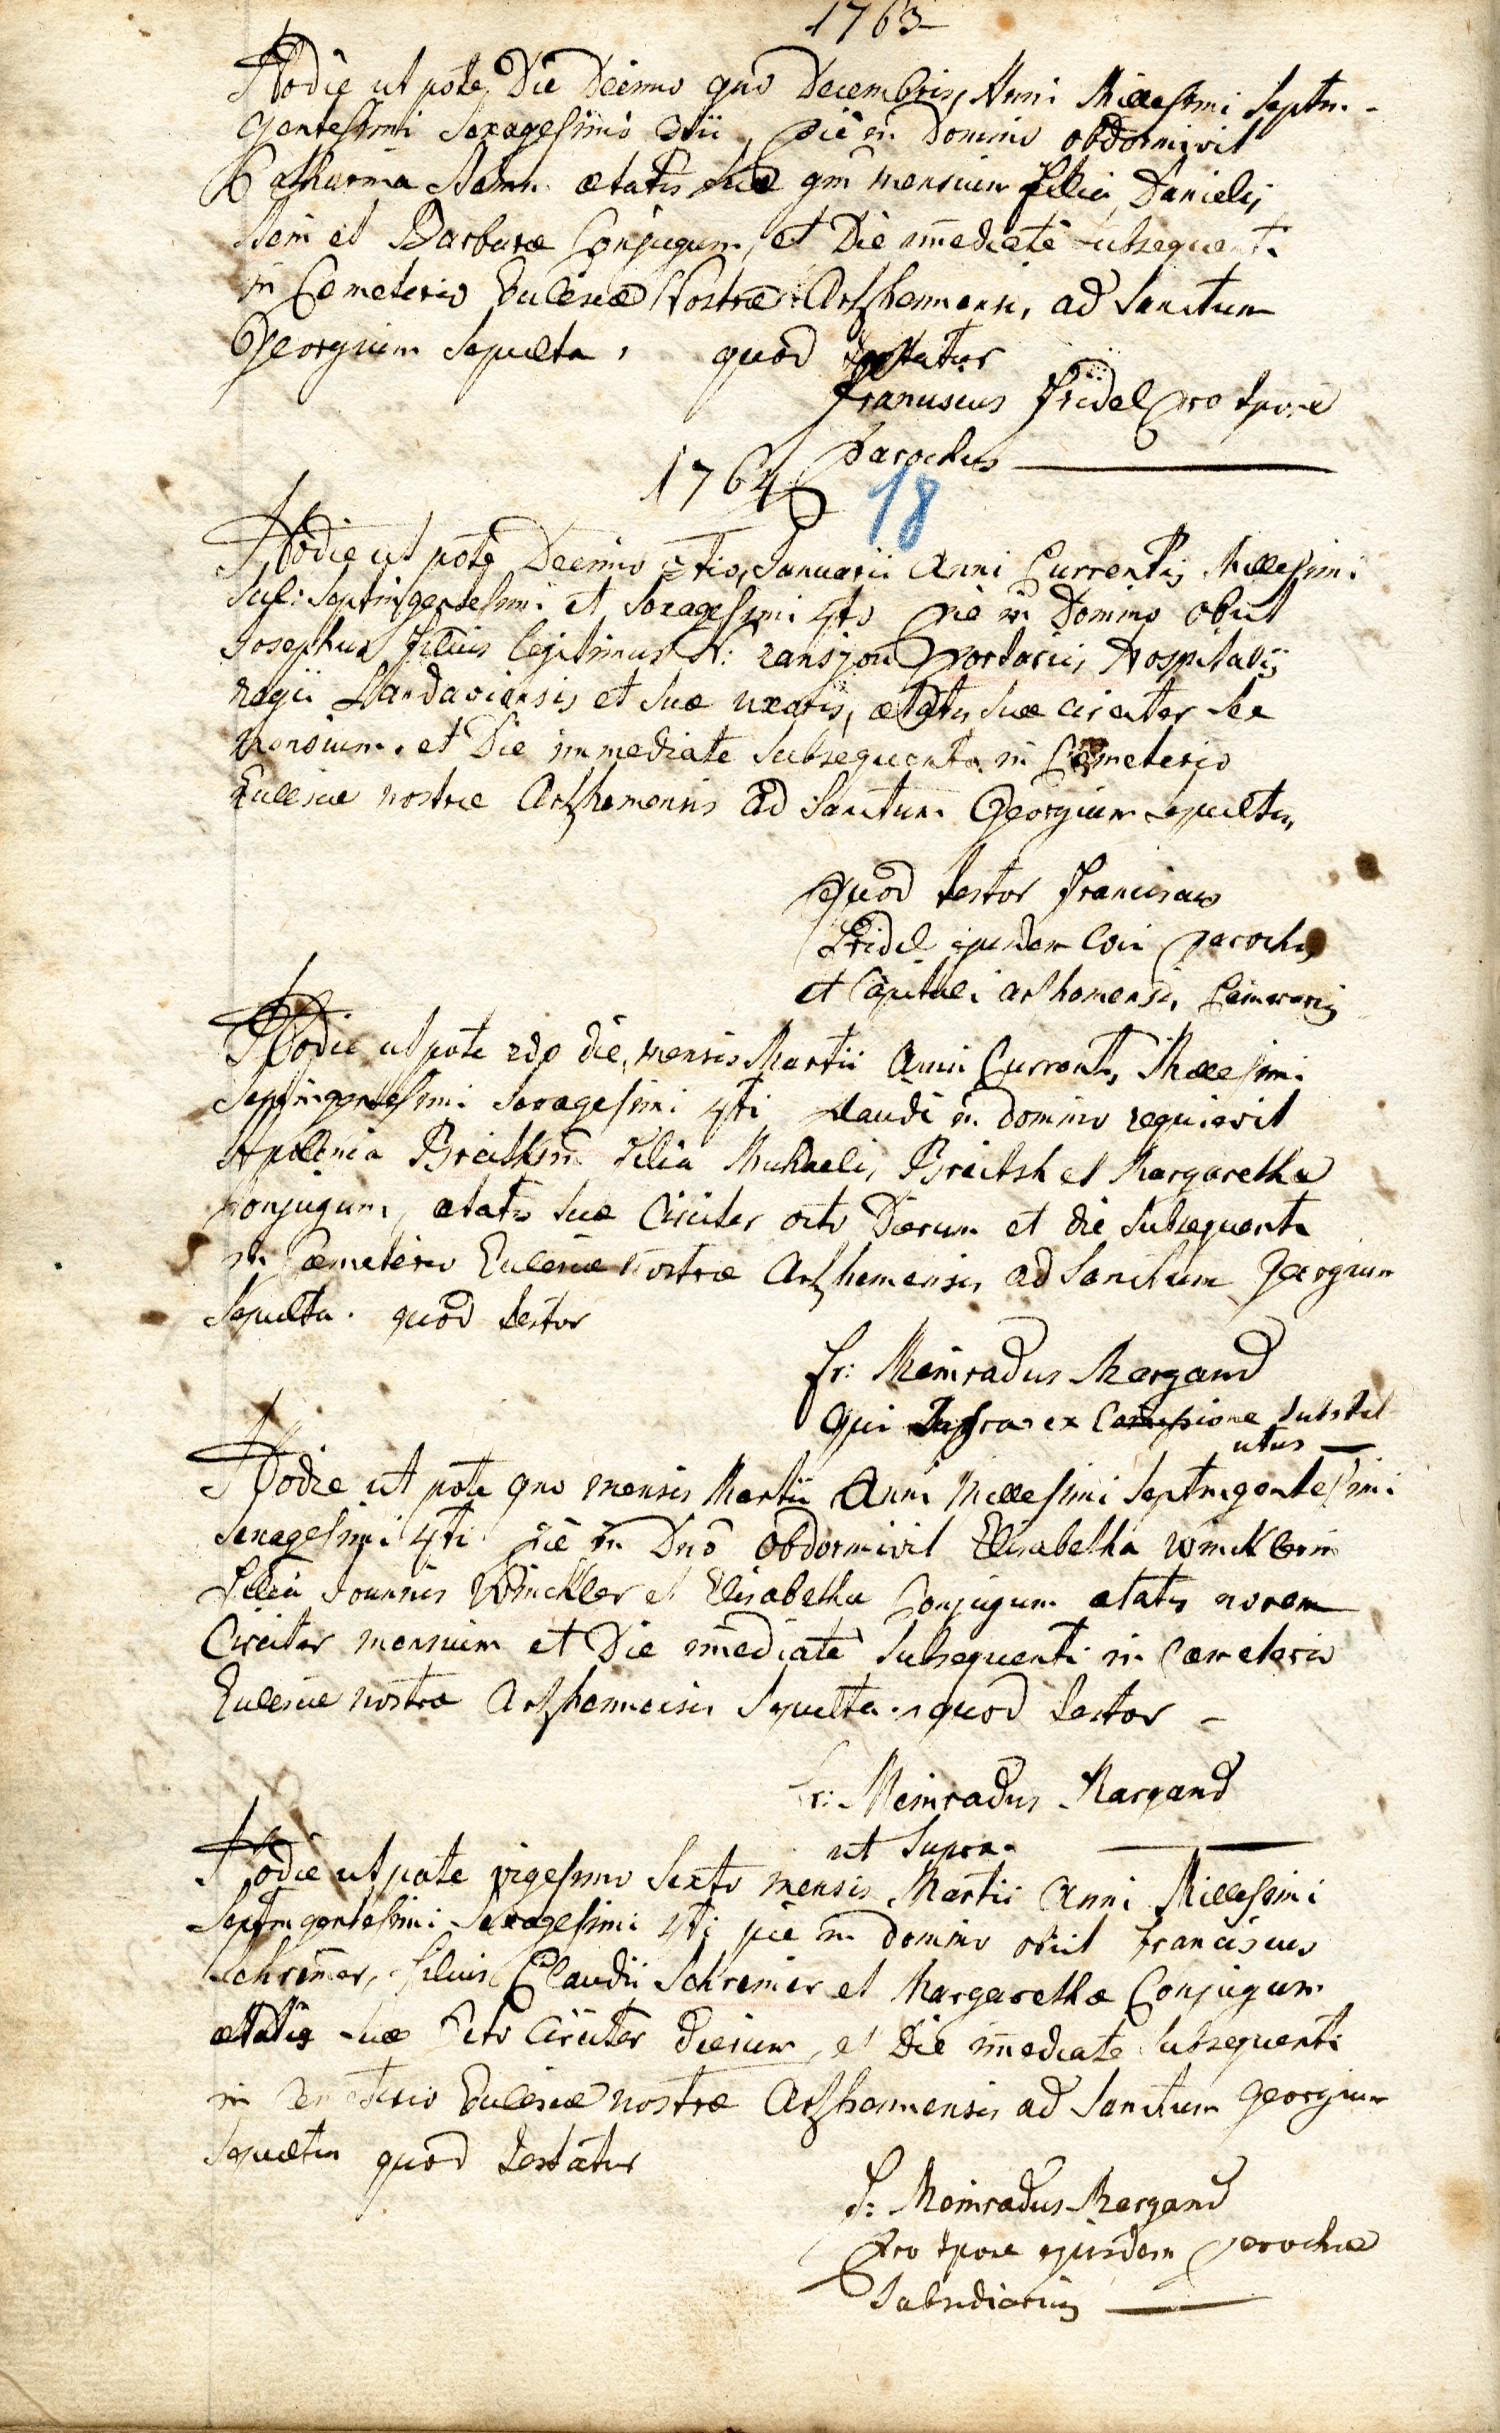 1763
Hodie ut pote Die Decimo qno Decembris, Anni Millesimi Septin-
gentesimi Sexagesimi 3tii, pie in Domino obdormivit
Catharina Aemin ætatis suæ qm mensium filia Danielis
Aem et Barbaræ Conjugum, et Die im̄ediate subsequenti
in Cemeterio Ecclesiæ Nostræ Arzhemiensis, ad Sanctum
Georgium Sepulta, quod testatur
Franciscus Fridel pro tpore
parochus
1764
18
Hodie ut pote Decimo 3tio, Januarii Anni Currentis Millesimi
Septingentesimi et Sexagesimi 4to pie in Domino obiit
Josephus filius legitimus N: ransjou portarii, Hospitalis
regii Landaviensis et suæ uxoris, ætatis suæ circiter sex
mensium. et Die immediate subsequente in Cemeterio
Ecclesiæ nostræ Arzhemensis ad Sanctum Georgium sepultus,
quod testor Franciscus
Fridel ejusdem loci parochus
et Capituli arzhemensis, Camerarius
Hodie ut pote 2do die, mensis Martii Anni Currentis, Millesimi
Septingentesimi Sexagesimi 4ti in Domino requievit
Apollonia filia Michaelis, Breitsh et Margaretha
Conjugum, ætatis suæ Circiter octo Dierum et die subsequenti
in Cæmeterio Ecclesiæ nostræ Arzhemensis ad Sanctum Georgium
Sepulta. quod testor
fr: Meinradus Margand
qui Infra ex Com̄issione substit
utus
Hodie ut pote qno mensis Martii Anni Millesimi Septingentesimi
Sexagesimi 4ti pie in Dnō obdormivit Elisabetha Wincklerin
Filia Joannis Winckler et Elisabetha Conjugum ætatis novem
Circiter mensium et Die im̄ediate subsequenti in Cæmeterio
Ecclesiæ nostræ Arzhemiensis Sepulta. quod testor
fr: Meinradus Margand
ut Supra.
Hodie ut pote vigesimo Sexto mensis Martii Anni Millesimi
Septingentesimi Sexagesimi 4ti pie in domino obiit Franciscus
Schreiner, filius Claudii Schreinier et Margarethæ Conjugum
ætatis suæ octo Circiter dierum, et Die im̄ediate subsequenti
in Cemeterio Ecclesiæ nostræ Arzhemiensis ad Sanctum Georgium
Sepultus quod testatur
F: Meinradus Margand
pro tpore ejusdem parochiæ
Subsidiarius